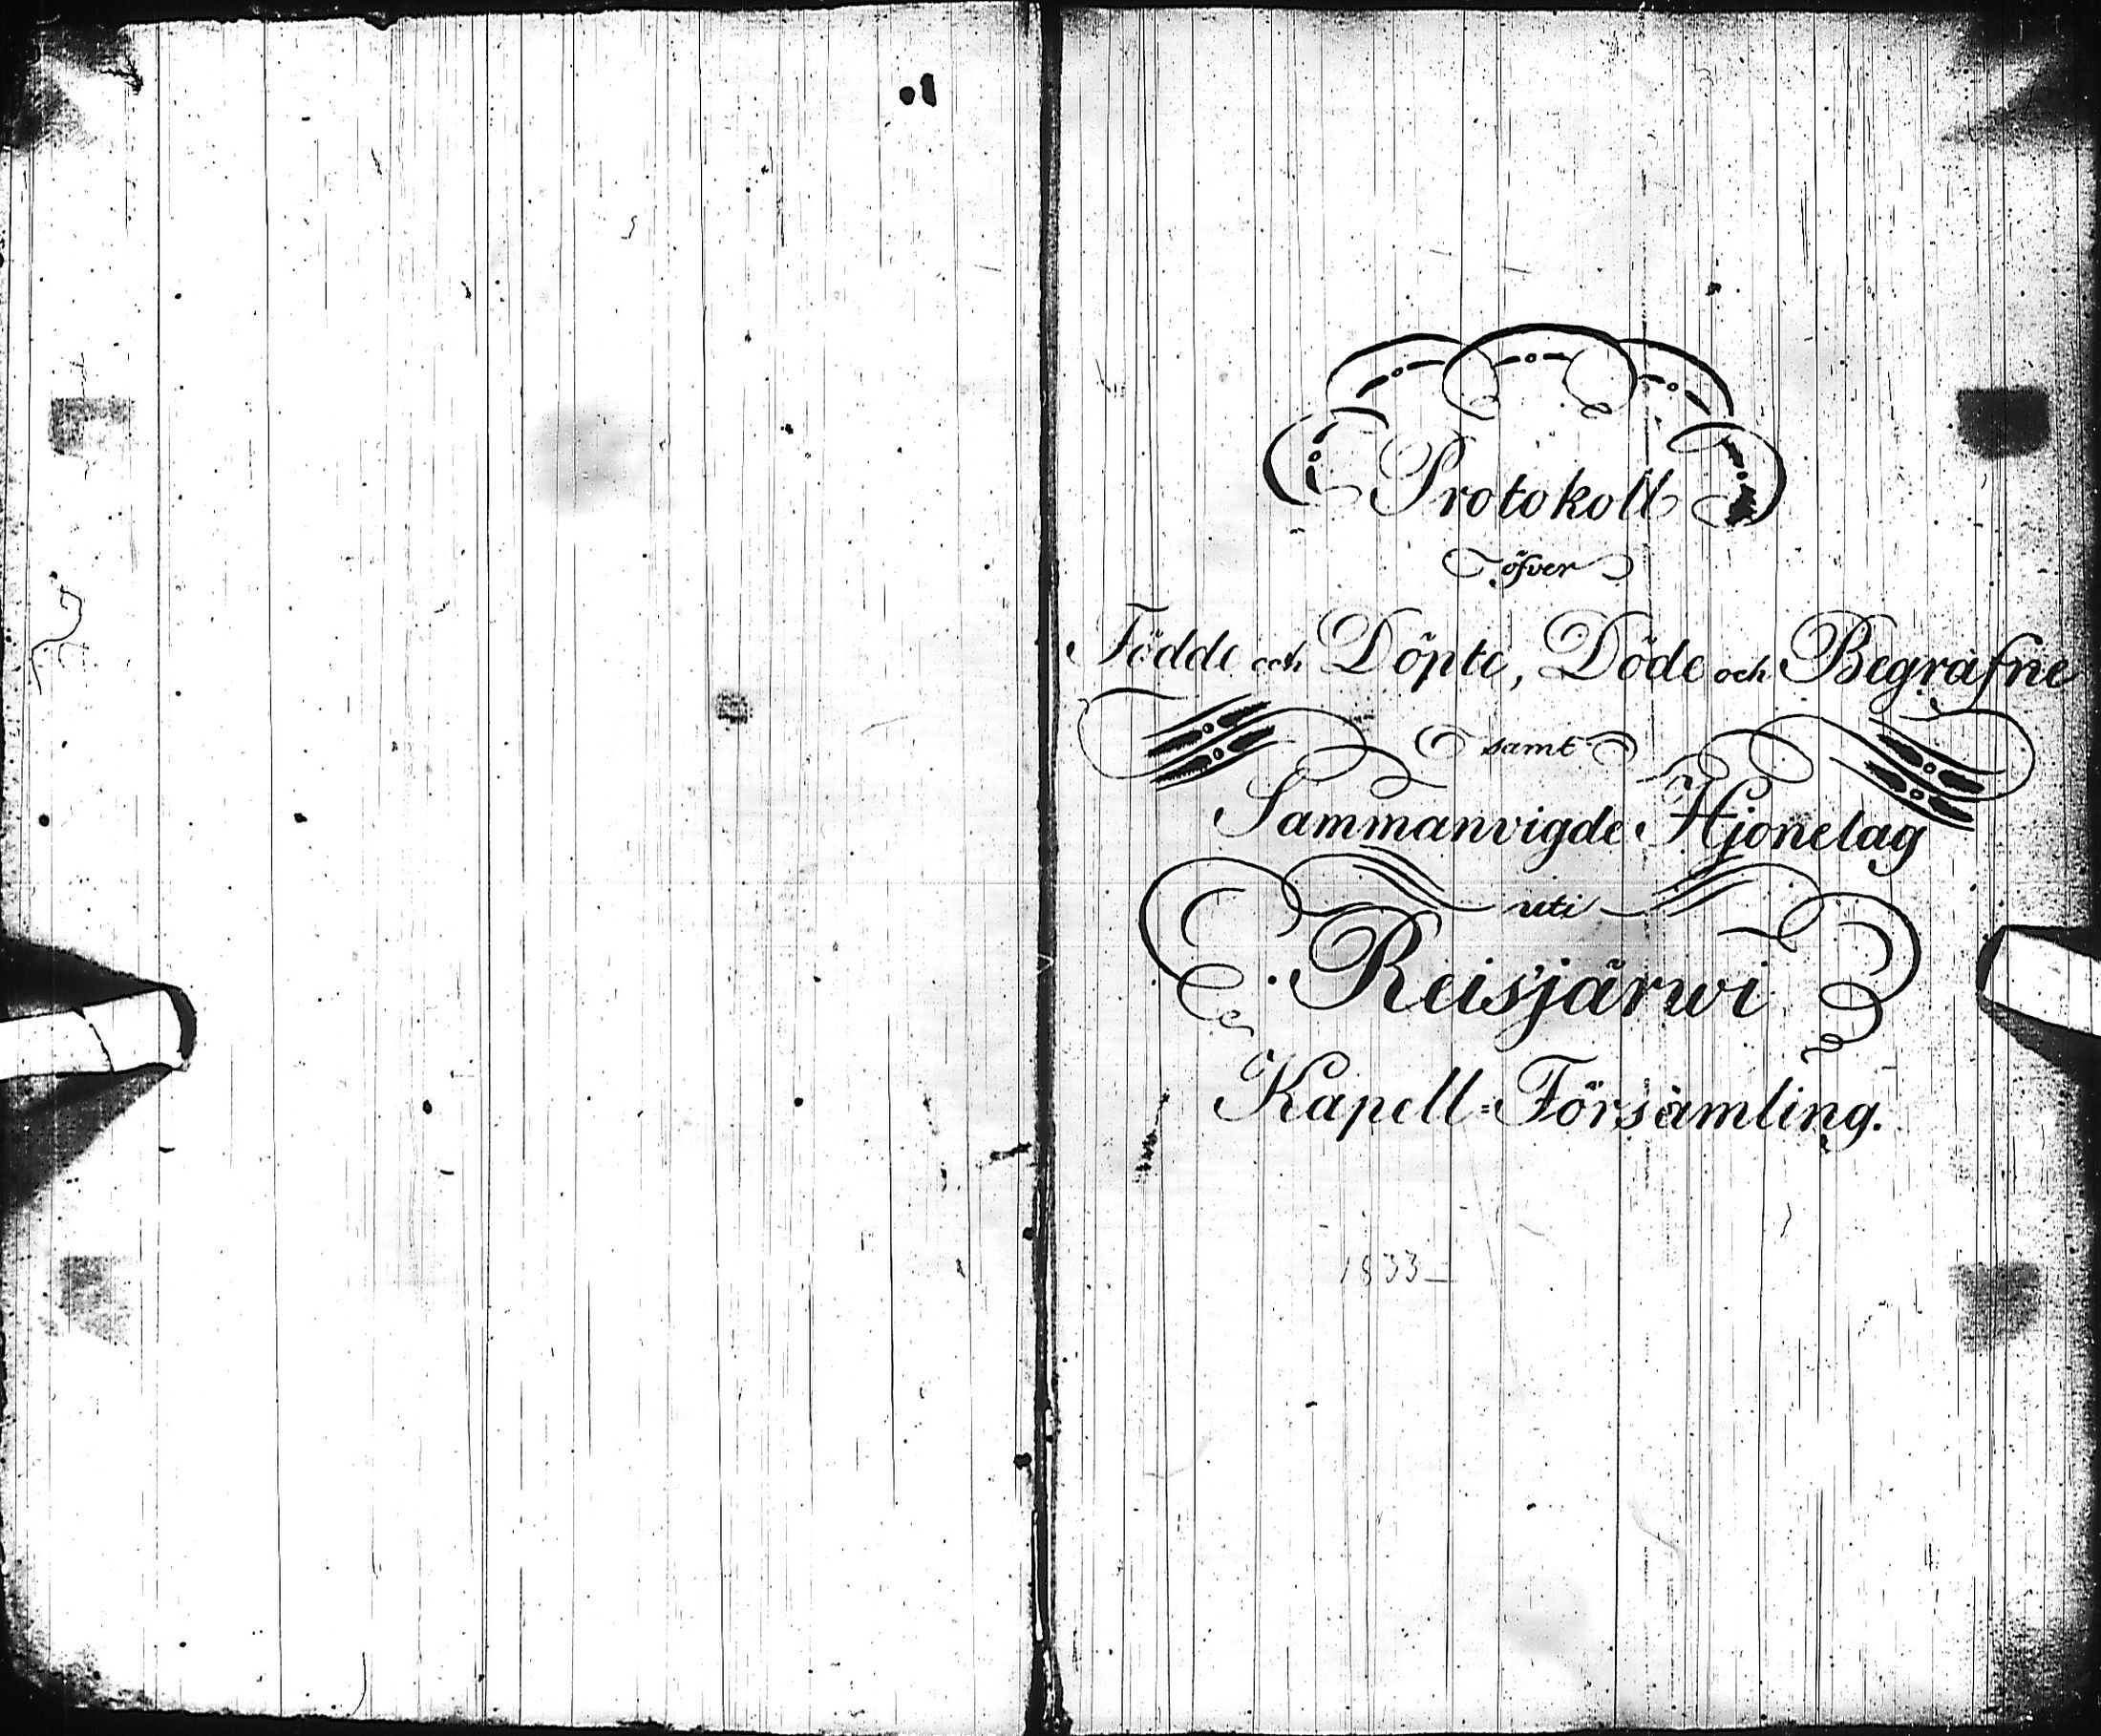 Protokoll
öfver
Födde och Döpte, Döde och Begrafne
samt
Sammanvigde Hjonelag
uti
Reisjärwi
Kapell=Församling.
1833_